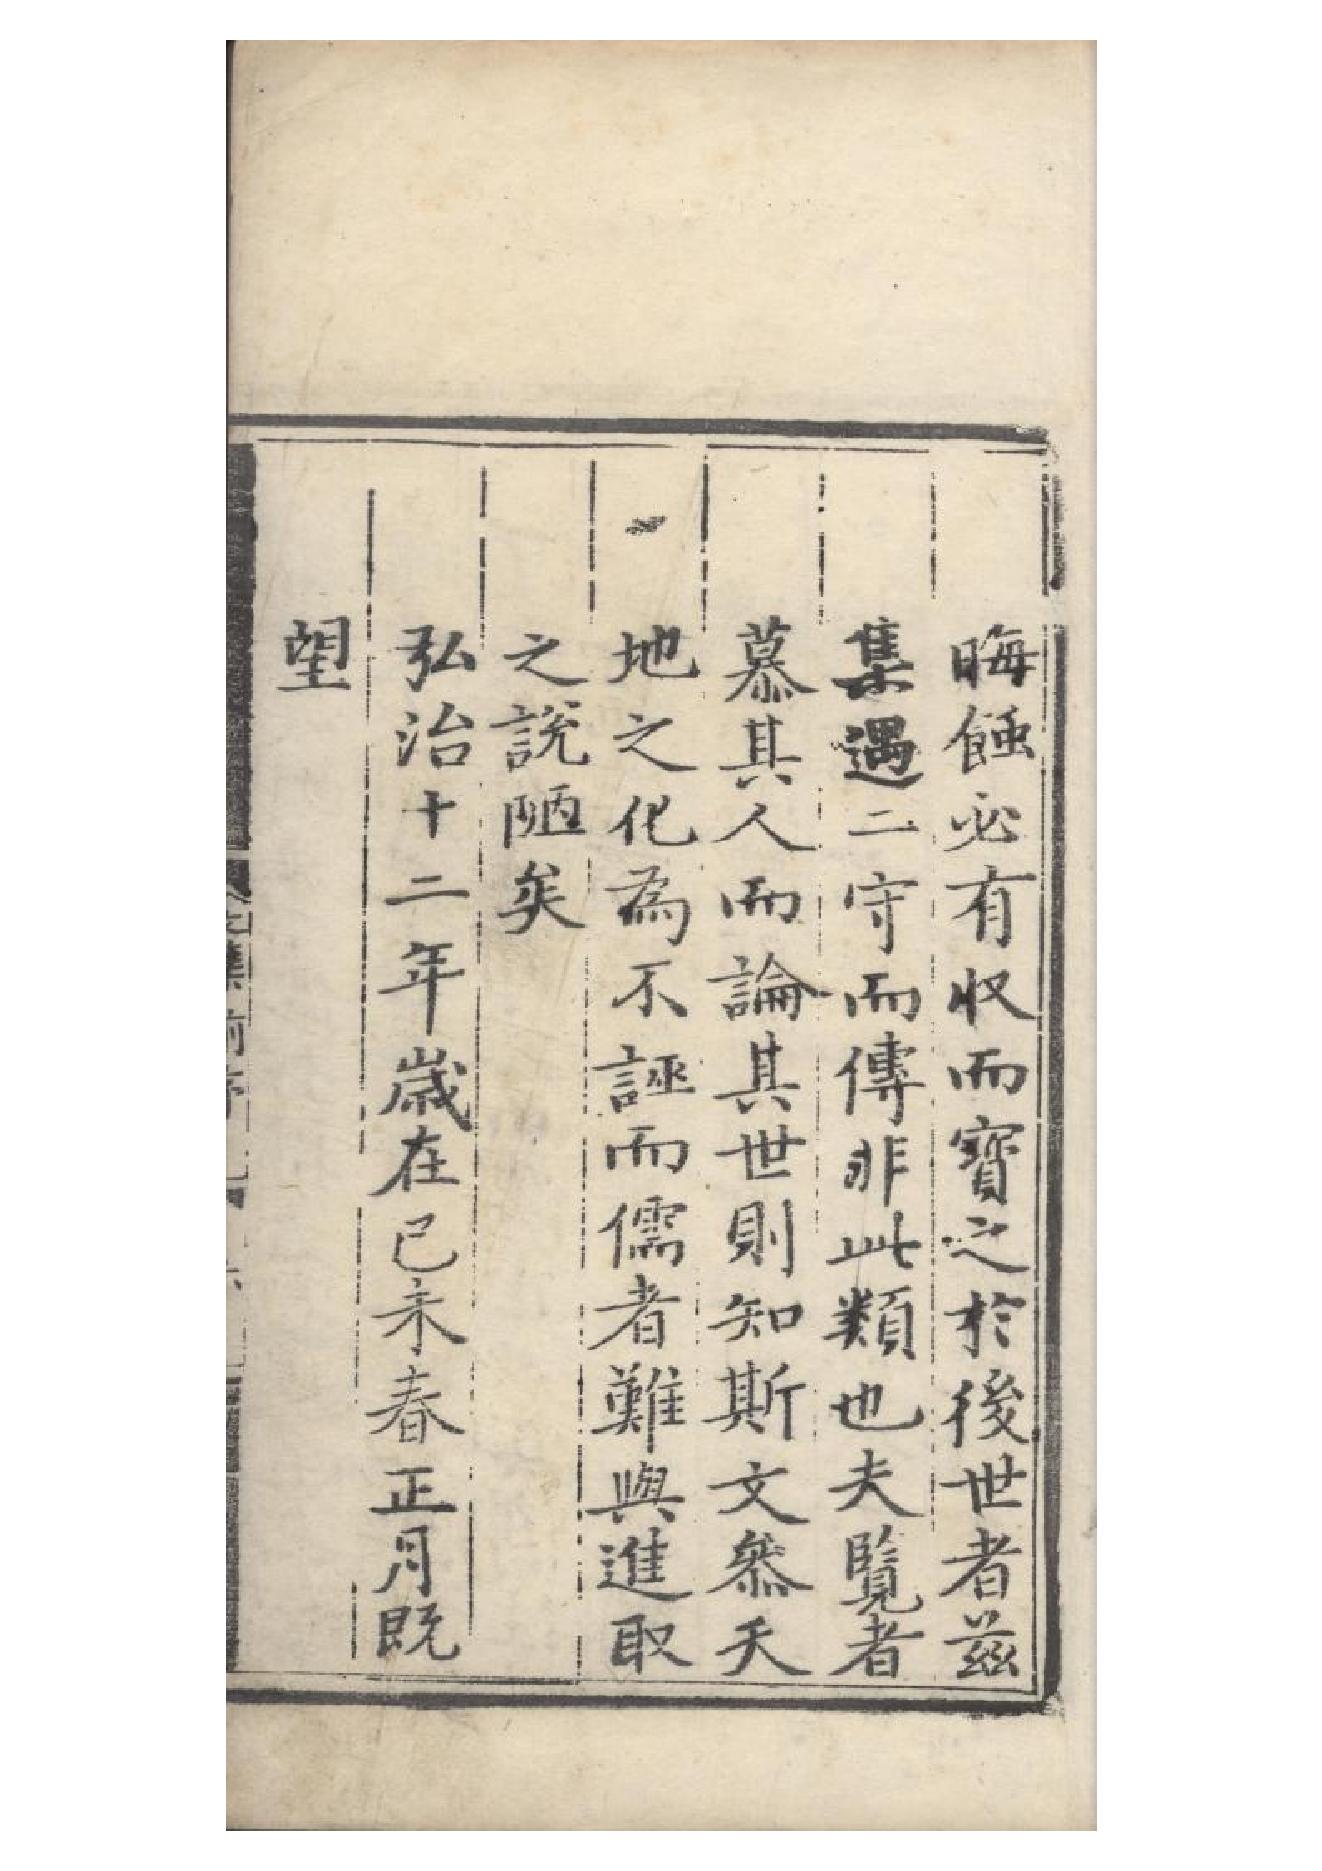 晦蝕必有収而寳之於後世者茲
集遇二守而傳非此類也夫覽者
慕其人而論其世則知斯文叅天
地之化為不誣而儒者難與進取
之說陋矣
弘治十二年歲在己未春正月既
望